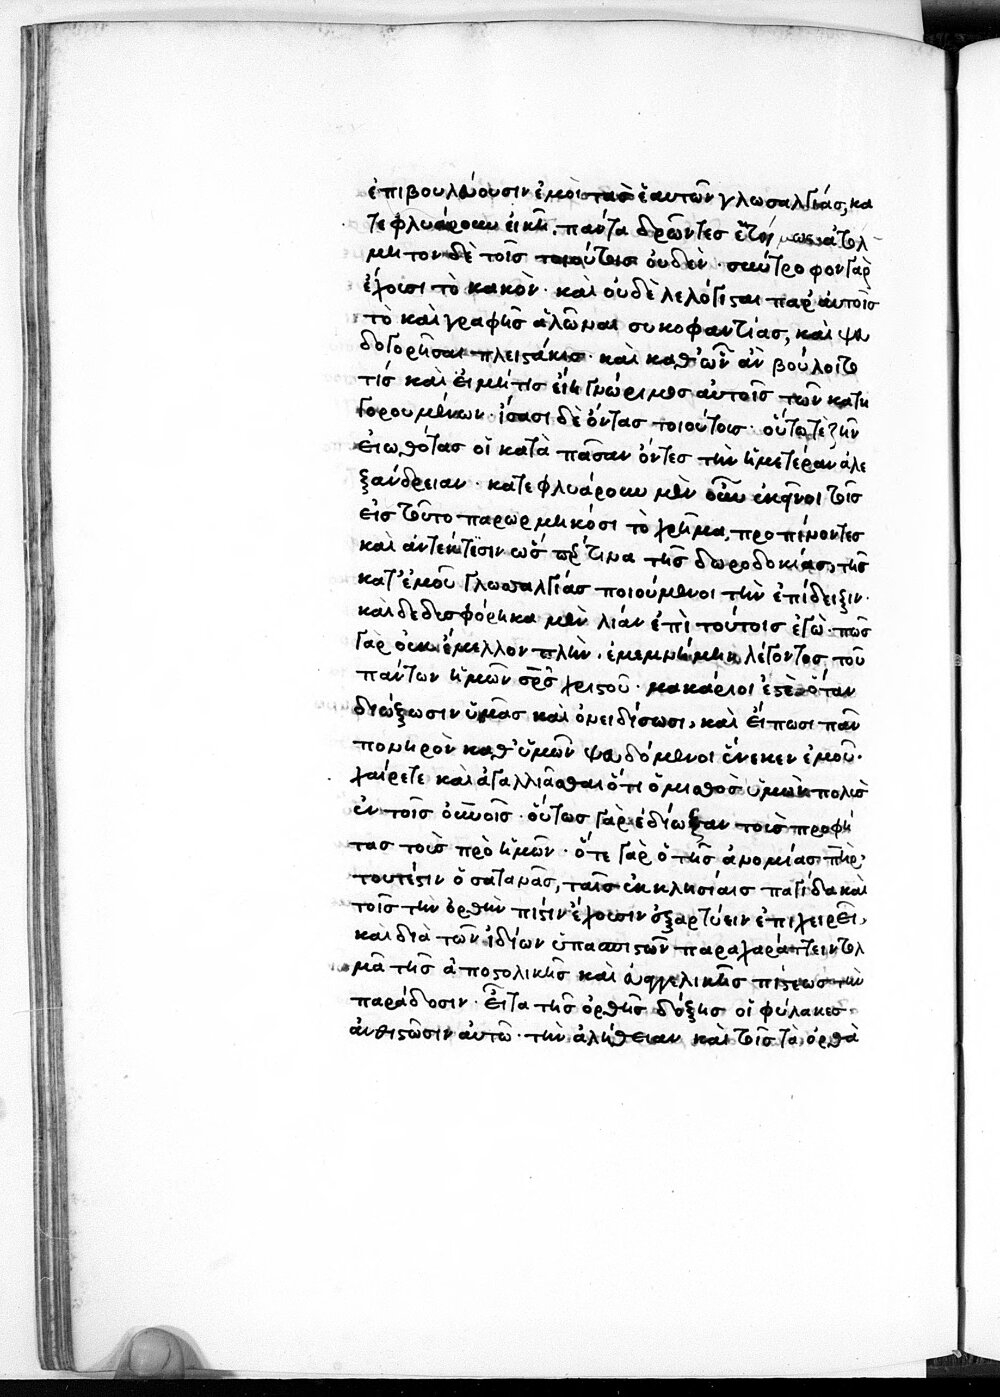 ἐπιβουλεύουσιν ἐμοὶ τὰς ἑαυτῶν γλωσαλγίας, κα
τεφλυάρουν εἰκῆ, πάντα δρῶντες ἑτοίμως ἀτόλ
μητον δὲ τοῖς τοιούτοις οὐδέν· σκύτροφον γὰρ
ἔχουσι τὸ κακὸν· καὶ οὐδὲ λελόγισται παρ' αὐτοῖς
τὸ καὶ γραφῆς ἁλῶναι συκοφαντίας, καὶ ψευ
δογορῆσαι πλειστάκις· καὶ καθ' ὧν ἂν βούλοιτο
τίς καὶ εἰ μή τις εἴη γνώριμος αὐτοῖς τῶν κατη
γορουμένων· ἴσασι δὲ ὄντας τοιούτους· οὕτω τὲ ζῆν
εἰωθότας οἱ κατὰ πᾶσαν ὄντες τὴν ἡμετέραν ἀλε
ξάνδρειαν· κατεφλυάρουν μὲν οὖν ἐκεῖνοι τοῖς
εἰς τοῦτο παρωρμηκόσι τὸ χρῆμα, προπίνοντες
καὶ ἀντέκτεσιν ὡς πρὸς τινα τῆς δωροδοκίας, τῆς
κατ' ἐμοῦ γλωσαλγίας ποιούμενοι τὴν ἐπίδειξιν·
καὶ δεδυσφόρηκα μὲν λίαν ἐπὶ τούτοις ἐγώ· πῶς
γὰρ οὐκ ἔμελλον πλὴν· ἐμεμνήμην λέγοντος, τοῦ
πάντων ἡμῶν σρσ χριστοῦ· μακάριοι ἐστὲ ὅταν
διώξωσιν ὑμᾶς καὶ ὀνειδίσωσι, καὶ εἴπωσι πᾶν
πονηρὸν καθ' ὑμῶν ψευδόμενοι ἕνεκεν ἐμοῦ·
χαίρετε καὶ ἀγαλλιᾶσθαι ὅτι ὁ μισθὸς ὑμῶν πολὺς
ἐν τοῖς οὐνοῖς· οὕτως γὰρ ἐδίωξαν τοὺς προφή
τας τοὺς πρὸ ἡμῶν· ὅτε γὰρ ὁ τῆς ἀνομίας πηρ,
τουτέστιν ὁ σατανᾶς, ταῖς ἐκκλησίαις παγίδα καὶ
τοῖς τὴν ὀρθὴν πίστιν ἔχουσιν ἐξαρτύειν ἐπιχειρεῖ,
καὶ διὰ τῶν ἰδίων ὑπασπιστῶν παραχαράττειν τολ
μᾶ τῆς ἀποστολικῆς καὶ εὐαγγελικῆς πίστεως τὴν
παράδοσιν· εἶτα τῆς ὀρθῆς δόξης οἱ φύλακες
ἀνθιστῶσιν αὐτῶ· τὴν ἀλήθειαν καὶ τοῖς τὰ ὀρθὰ